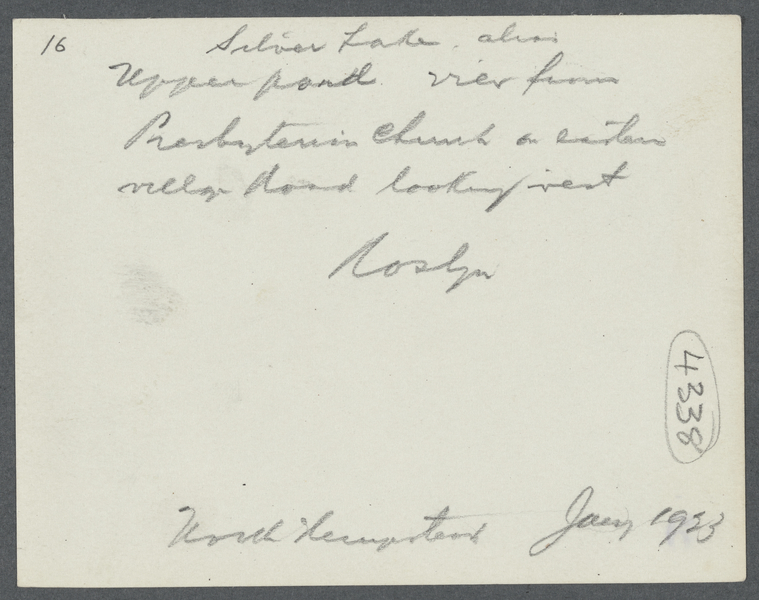 16
Silver Lake, alias
Upper pond view from
Presbyterian Church on eastern
village Road looking west
Roslyn
4338
North Hempstead Jany 1923